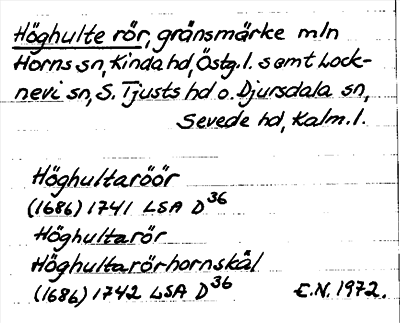 Höghulte rör, gränsmärke mln
Horns sn, Kinda hd, Östg.l. samt Lock-
nevi sn, S. Tjusts hd o. Djursdala sn,
Sevede hd, Kalm.l.
Höghultaröör
(1686) 1741 LSA D36
Höghultarör
Höghultarörhornskäl
(1686) 1742 LSA D36
E.N. 1972.